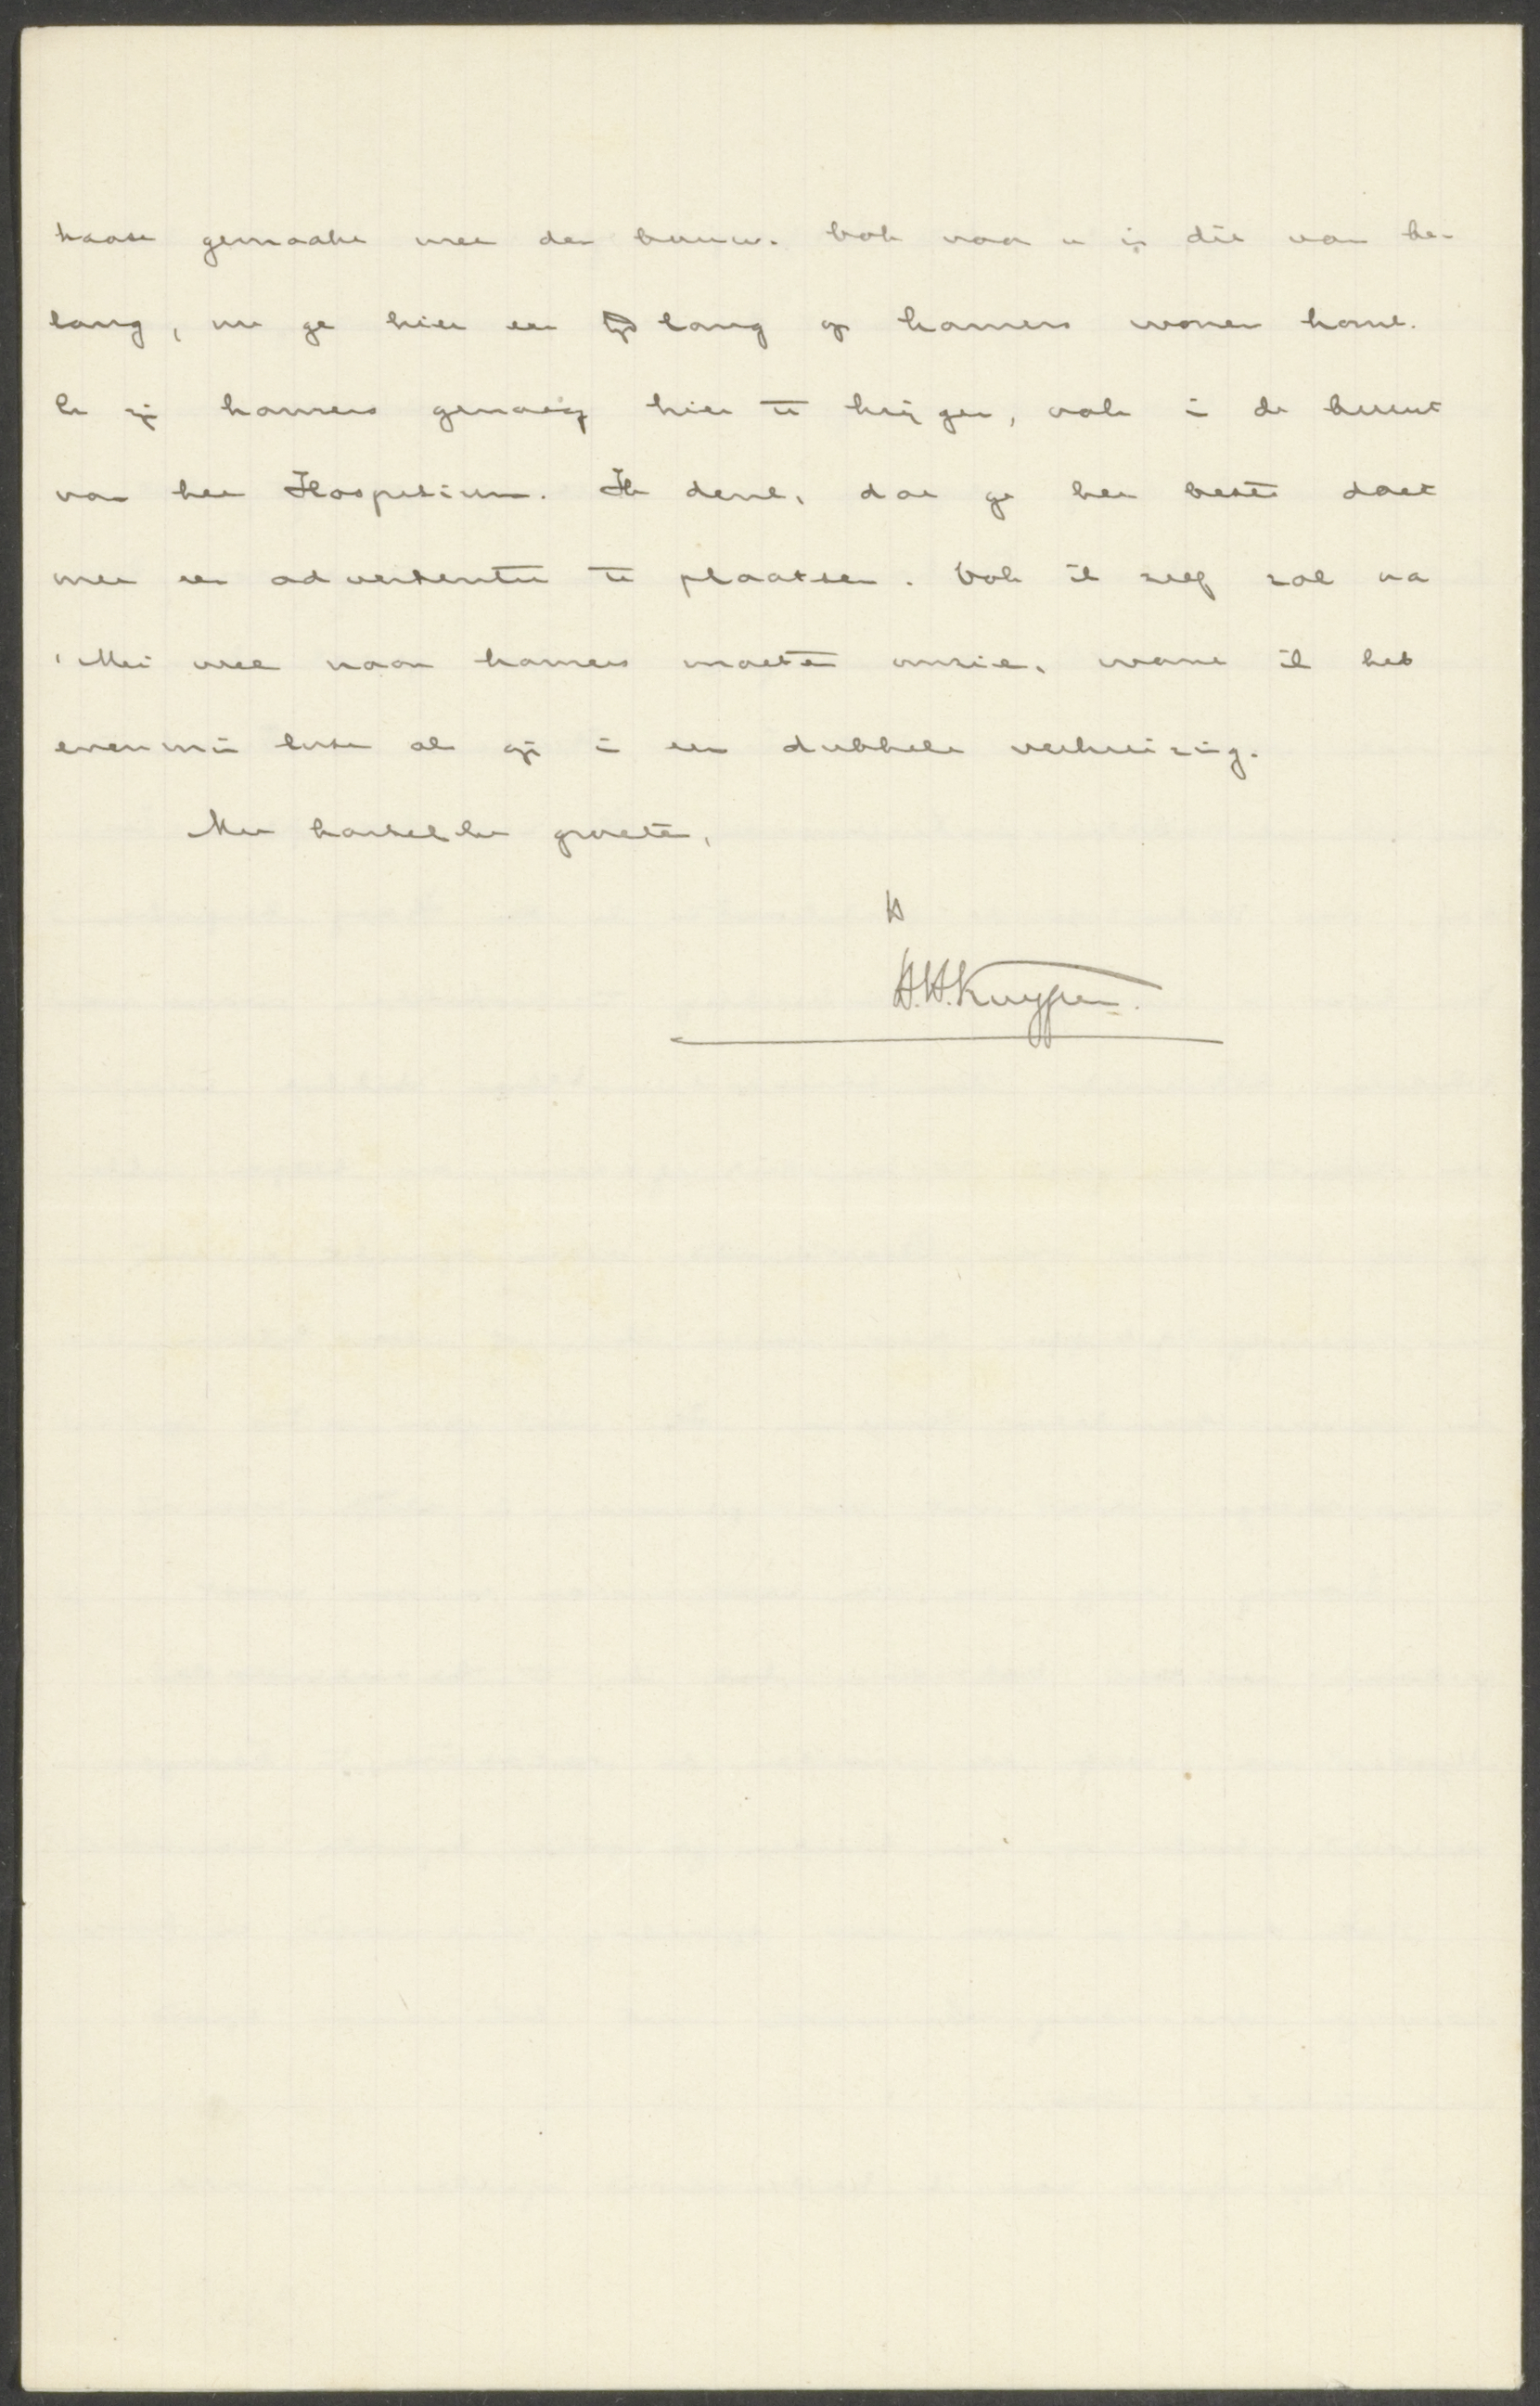 haast gemaakt met den bouw. Ook voor u is dit van be-
lang, nu ge hier een tijd lang op kamers wonen komt.
Er zijn kamers genoeg hier te krijgen, ook in de buurt
van het Hospitium. Ik denk, dat ge het beste doet
met een advertentie te plaatsen. Ook ik zelf zal na
1 Mei wel naar kamers moeten omzien, want ik heb
evenmin lust als gij in een dubbele verhuizing.
Met hartelijke groeten,
H. H. Kuyper.